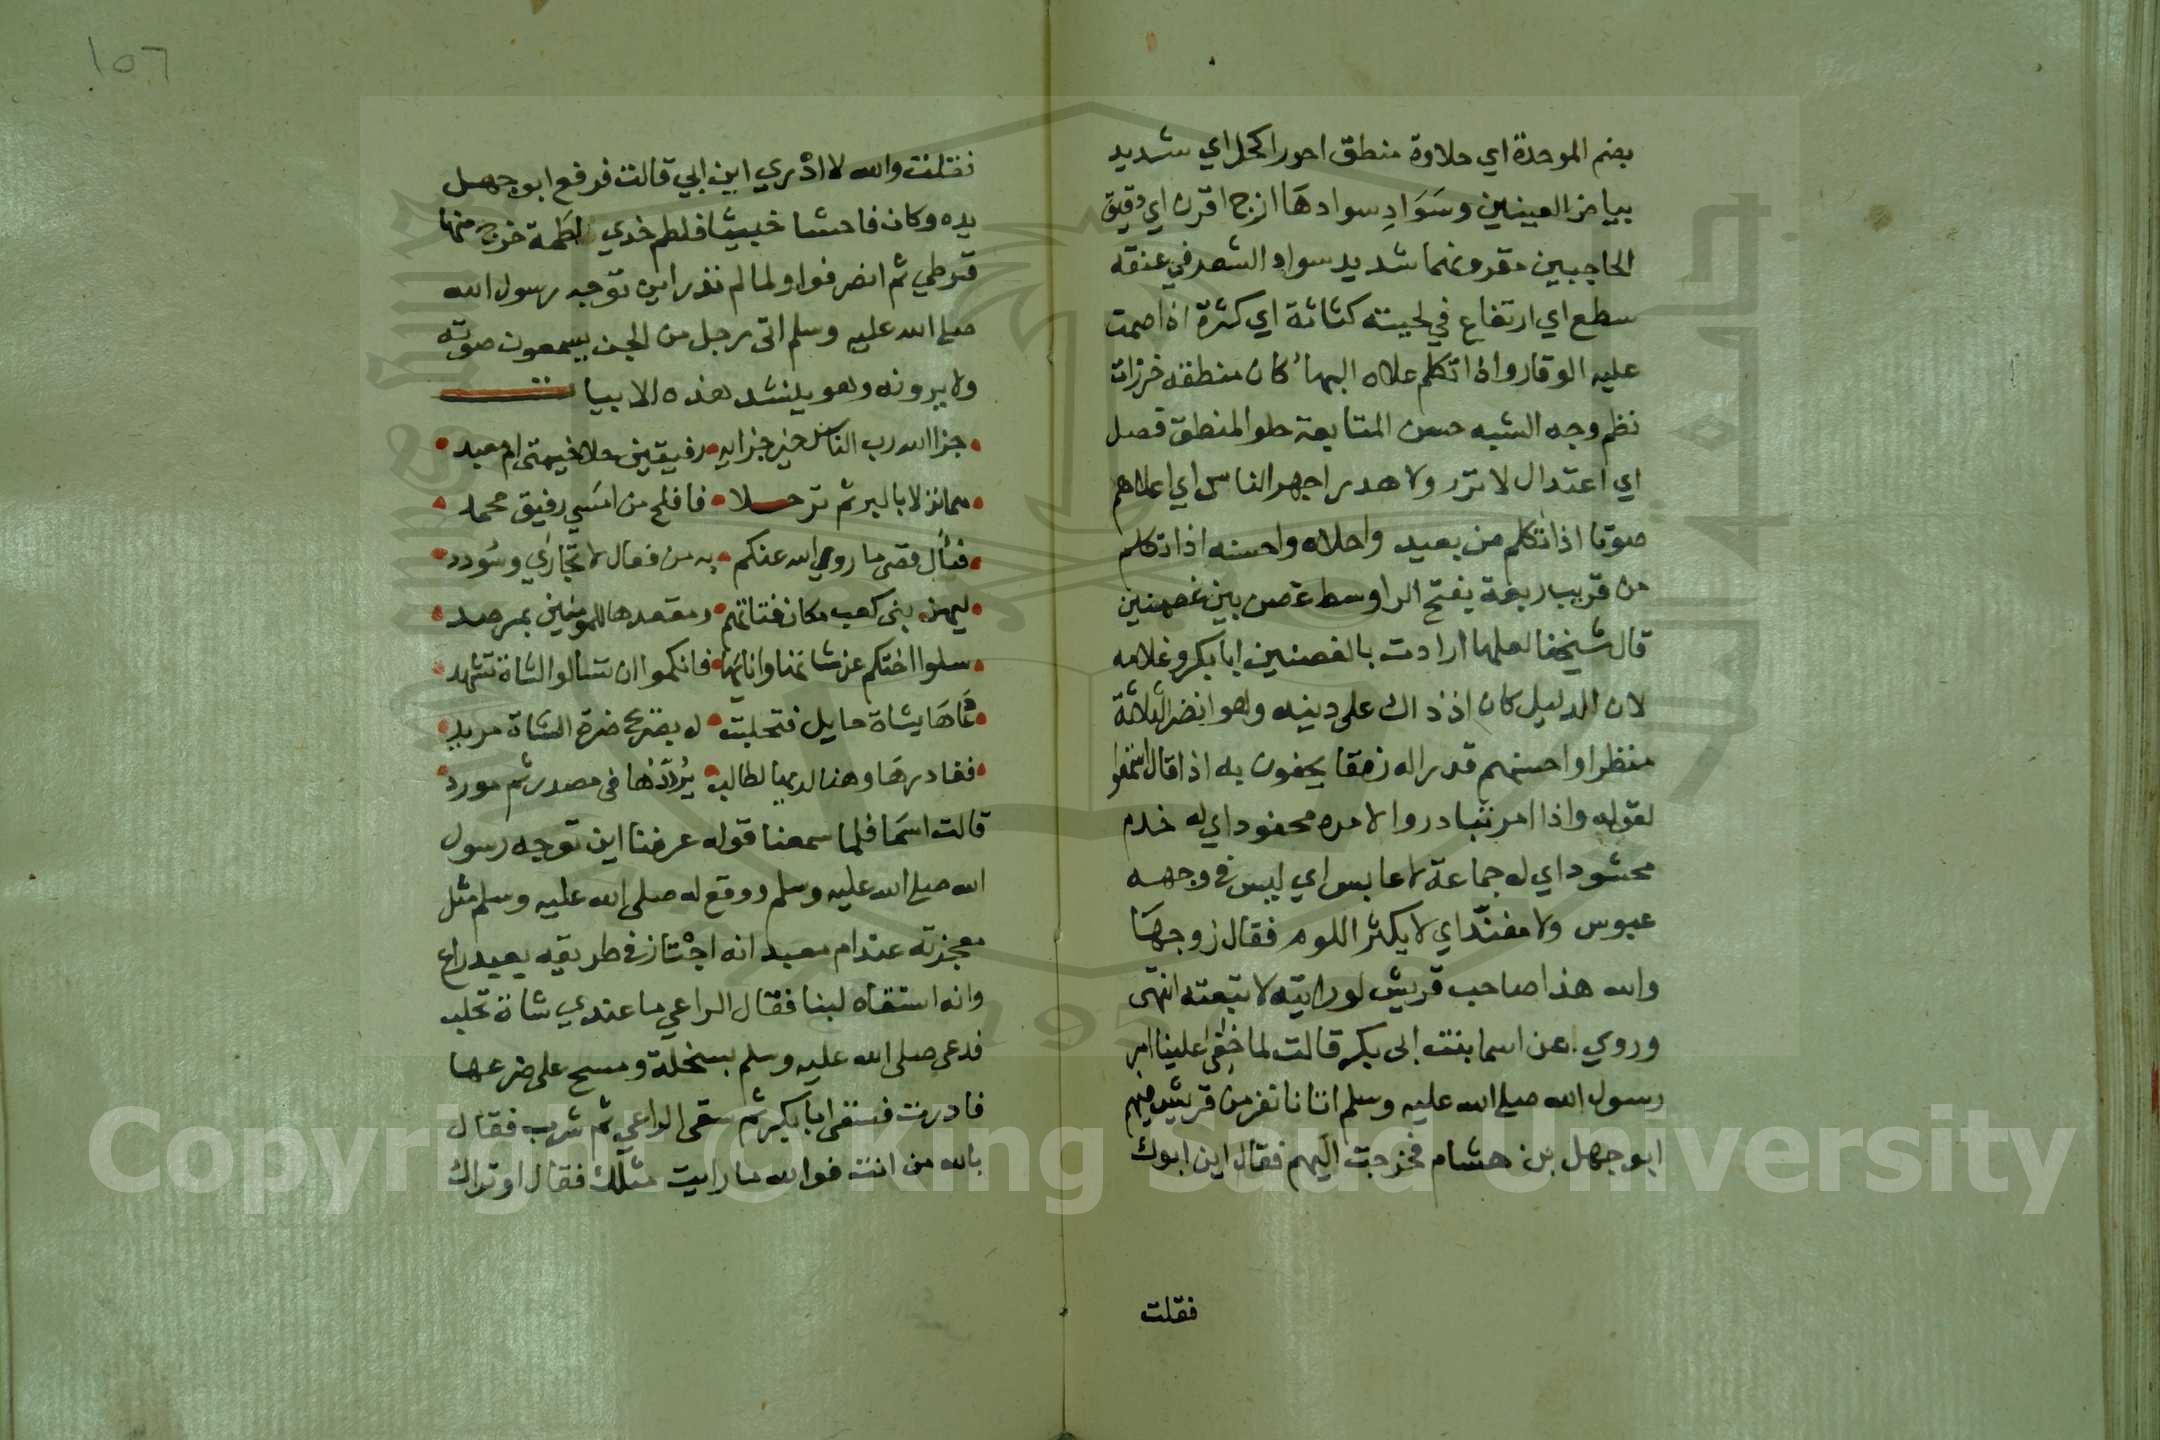 بضم الموحدة اي حلاوة منطق احور اكحل اي شديد
بياض العينين وسَوَادِ سوادهَا ازج اقرن اي دقيق
الحاجبين مقرونهما شديد سواد الشعر في عنقه
سطع اي ارتفاع في لحيته كثاثة اي كثرة اذا صمت
عليه الوقار واذا تكلم علاه البهاء كان منطقه خرزات
نظم وجه الشبه حسن المتابعة حلو المنطق فصل
اي اعتدال لا نزر ولا هدر اجهر الناس اي اعلاهم
صوتا اذا تكلم من بعيد واحلاه واحسنه اذا تكلم
من قريب ربعة بفتح الراوسط غصن بين غصنين
قال شيخنا لعلها ارادت بالغصنين ابا بكر وغلامه
لان الدليل كان اذ ذاك على دينه وهو انضر الثلاثة
منظرا واحسنهم قدرا له رفقا يحفون به اذا قال استمعوا
لقوله واذا امر تبادروا لامره محفود اي له خدم
محشود اي له جماعة لا عابس اي ليس في وجهه
عبوس ولا مفنّد اي لا يكثر اللوم فقال زوجهَا
والله هذا صاحب قريش لو رايته لا تبعته انتهى
وروي عن اسما بنت ابى بكر قالت لما خفى علينا امر
رسول الله صلى الله عليه وسلم اتانا نفر من قريش فيهم
ابو جهل بن هشام فخرجت اليهم فقال اين ابوك
فقلت
١٥٦
فقلت والله لا ادْري اين ابي قالت فرفع ابو جهل
يده وكان فاحشا خبيثا فلطم خدي لطمة خرج منها
قرطي ثم انصرفوا ولما لم ندر اين توجه رسول الله
صلى الله عليه وسلم اتى رجل من الجن يسمعون صوته
ولا يرونه وهو ينشد هذه الابيات
جزا الله رب الناس خير جزايه رفيقين حلا خيمتى ام معبد
هما نزلا بالبر ثم ترحلا فافلح من امسَي رفيق محمد
فيأل قصى ما روي الله عنكم به من فعال لا تجارَي وسُودد
ليهن بنى كعب مكان فتاتهم ومقعدها للمومنين بمرصد
سلوا اختكم عن شاتها واناَيها فانكموا ان تسالوا الشاة تشهد
دعَاهَا بشاة حايل فتحلبت له بصريح ضرة الشاة مزبد
فغادرهَا رهنا لديها لطالب يُرددُها في مصدر ثم مورد
قالت اسمَا فلما سمعنا قوله عرفنا اين توجه رسول
الله صلى الله عليه وسلم ووقع له صلى الله عليه وسلم مثل
معجزته عند ام معبد انه اجْتاز في طريقه بعبد راع
وانه استقاه لبنا فقال الراعي ما عندي شاة تحلب
فدعى صلى الله عليه وسلم بسخلة ومسح على ضرعها
فادرت فسقى ابا بكر ثم سقى الراعي ثم شرب فقال
بالله من انت فوالله ما رايت مثلك فقال اوتراك
Copyright © King Saud University